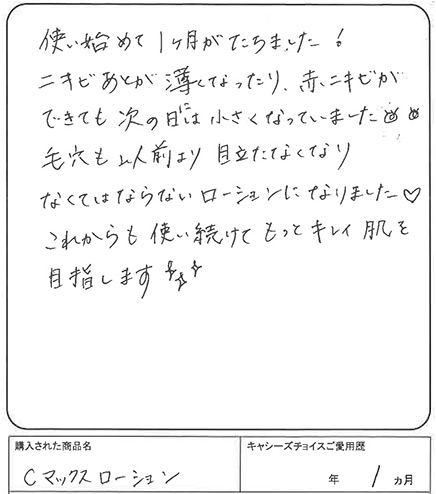 使い始めて1ヶ月がたちました！
ニキビあとが薄くなったり、赤ニキビが
できても次の日には小さくなっていました
毛穴も以前より目立たなくなり
なくてはならないローションになりました♡
これからも使い続けてもっとキレイ肌を
目指します
購入された商品名
キャシーズチョイスご愛用歴
Cマックスローション
年 1ヵ月